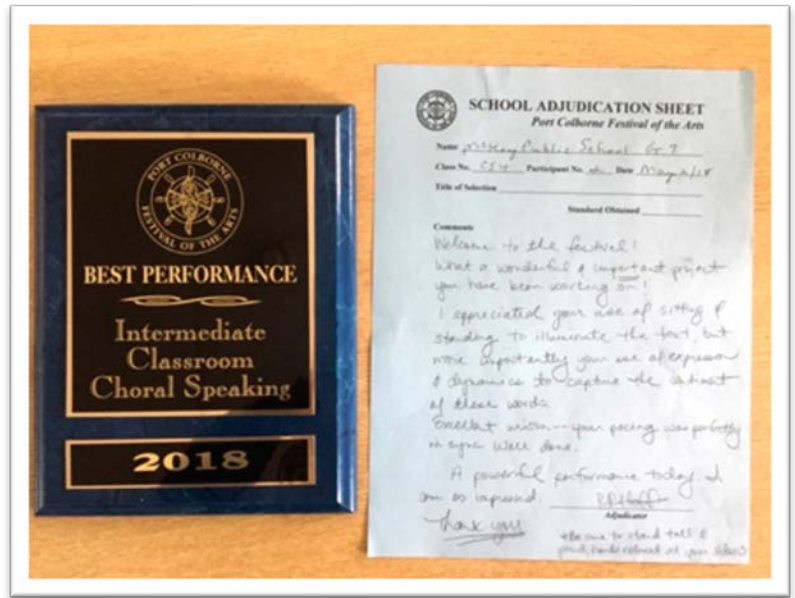 PORT COLBORNE
FESTIVAL OF THE ARTS
BEST PERFORMANCE
Intermediate
Classroom
Choral Speaking
2018
SCHOOL ADJUDICATION SHEET
Port Colborne Festival of the Arts
Name McKay Public School Gr 7
Class No. CS4 Participant No. Date May 2/18
Title of Selection
Standard Obtained
Comments
Welcome to the festival!
What a wonderful & important project
you have been working on!
I appreciated your use of sitting &
standing to illuminate the text, but
more importantly your use of expression
& dynamics to capture the
of these words.
Excellent unison - your pacing was perfectly
in sync. Well done.
A powerful performance today. I
am so impressed.
Adjudicator
Thank you
*Be sure to stand tall &
proud, hands relaxed at your sides